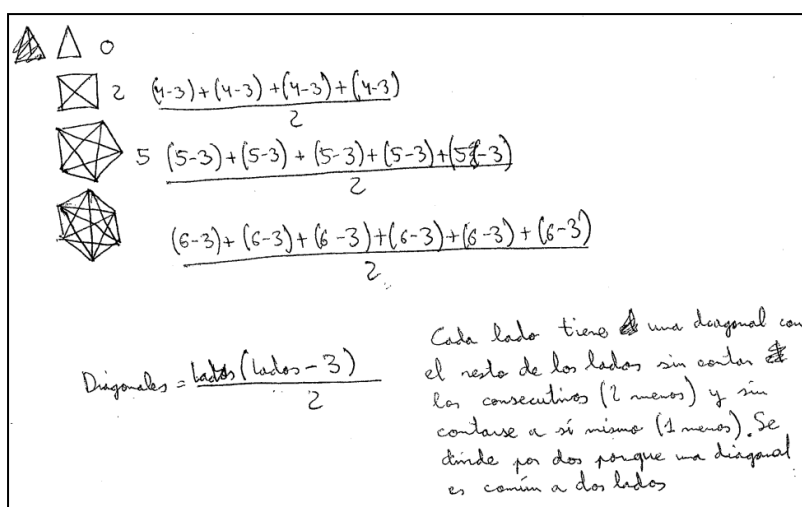 0
2 (4-3)+(4-3)+(4-3)+(4-3)
2
5 (5-3)+(5-3)+(5-3)+(5-3)+(5-3)
2
(6-3)+(6-3)+(6-3)+(6-3)+(6-3)+(6-3)
2
Diagonales = Lados(Lados-3)
2
Cada lado tiene una diagonal con
el resto de los lados sin contar
los consecutivos (2 menos) y sin
contarse a sí mismo (1 menos). Se
divide por dos porque una diagonal
es común a dos lados